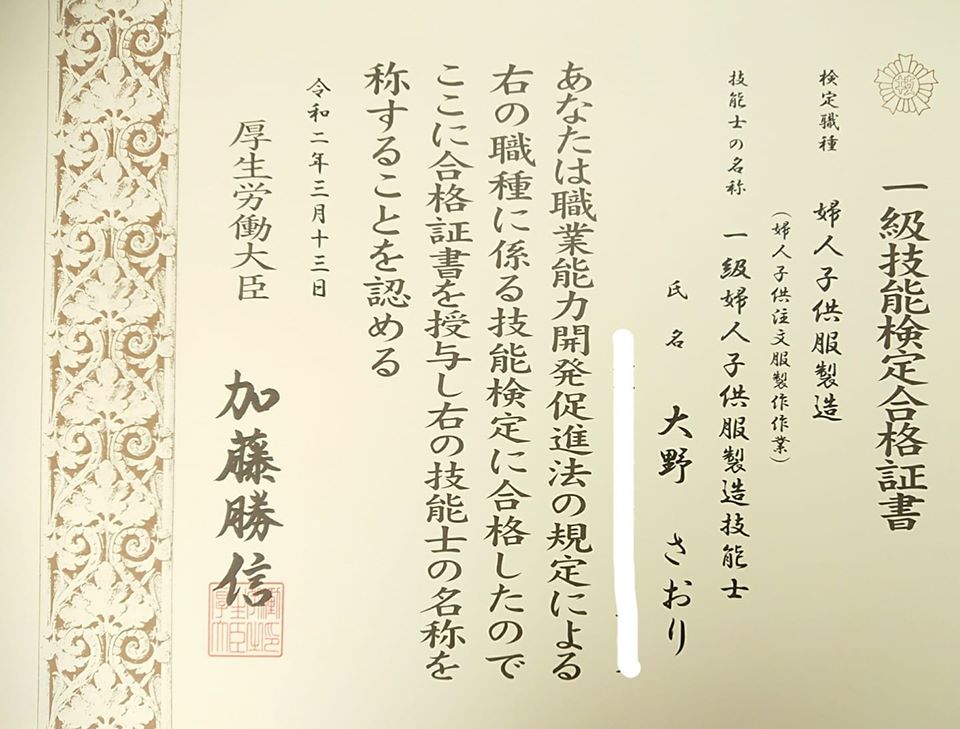 一級技能検定合格証書
検定職種 婦人子供服製造
（婦人子供注文服製作作業）
技能士の名称 一級婦人子供服製造技能士
氏名 大野 さおり
あなたは職業能力開発促進法の規定による
右の職種に係る技能検定に合格したので
ここに合格証書を授与し右の技能士の名称を
称することを認める
令和二年三月十三日
厚生労働大臣 加藤勝信